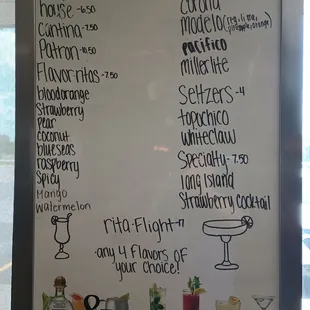 house -6.50
Cantina -7.50
Patron -10.50
Flavorritas -7.50
bloodorange
Strawberry
Pear
coconut
blueseas
raspberry
Spicy
Mango
watermelon
corona
modelo (reg, lime, pineapple, orange)
pacifico
millerlite
Seltzers -4
topochico
whiteclaw
Specialty -7.50
long Island
Strawberry cocktail
rita-Flight -17
-any 4 Flavors of
your choice!